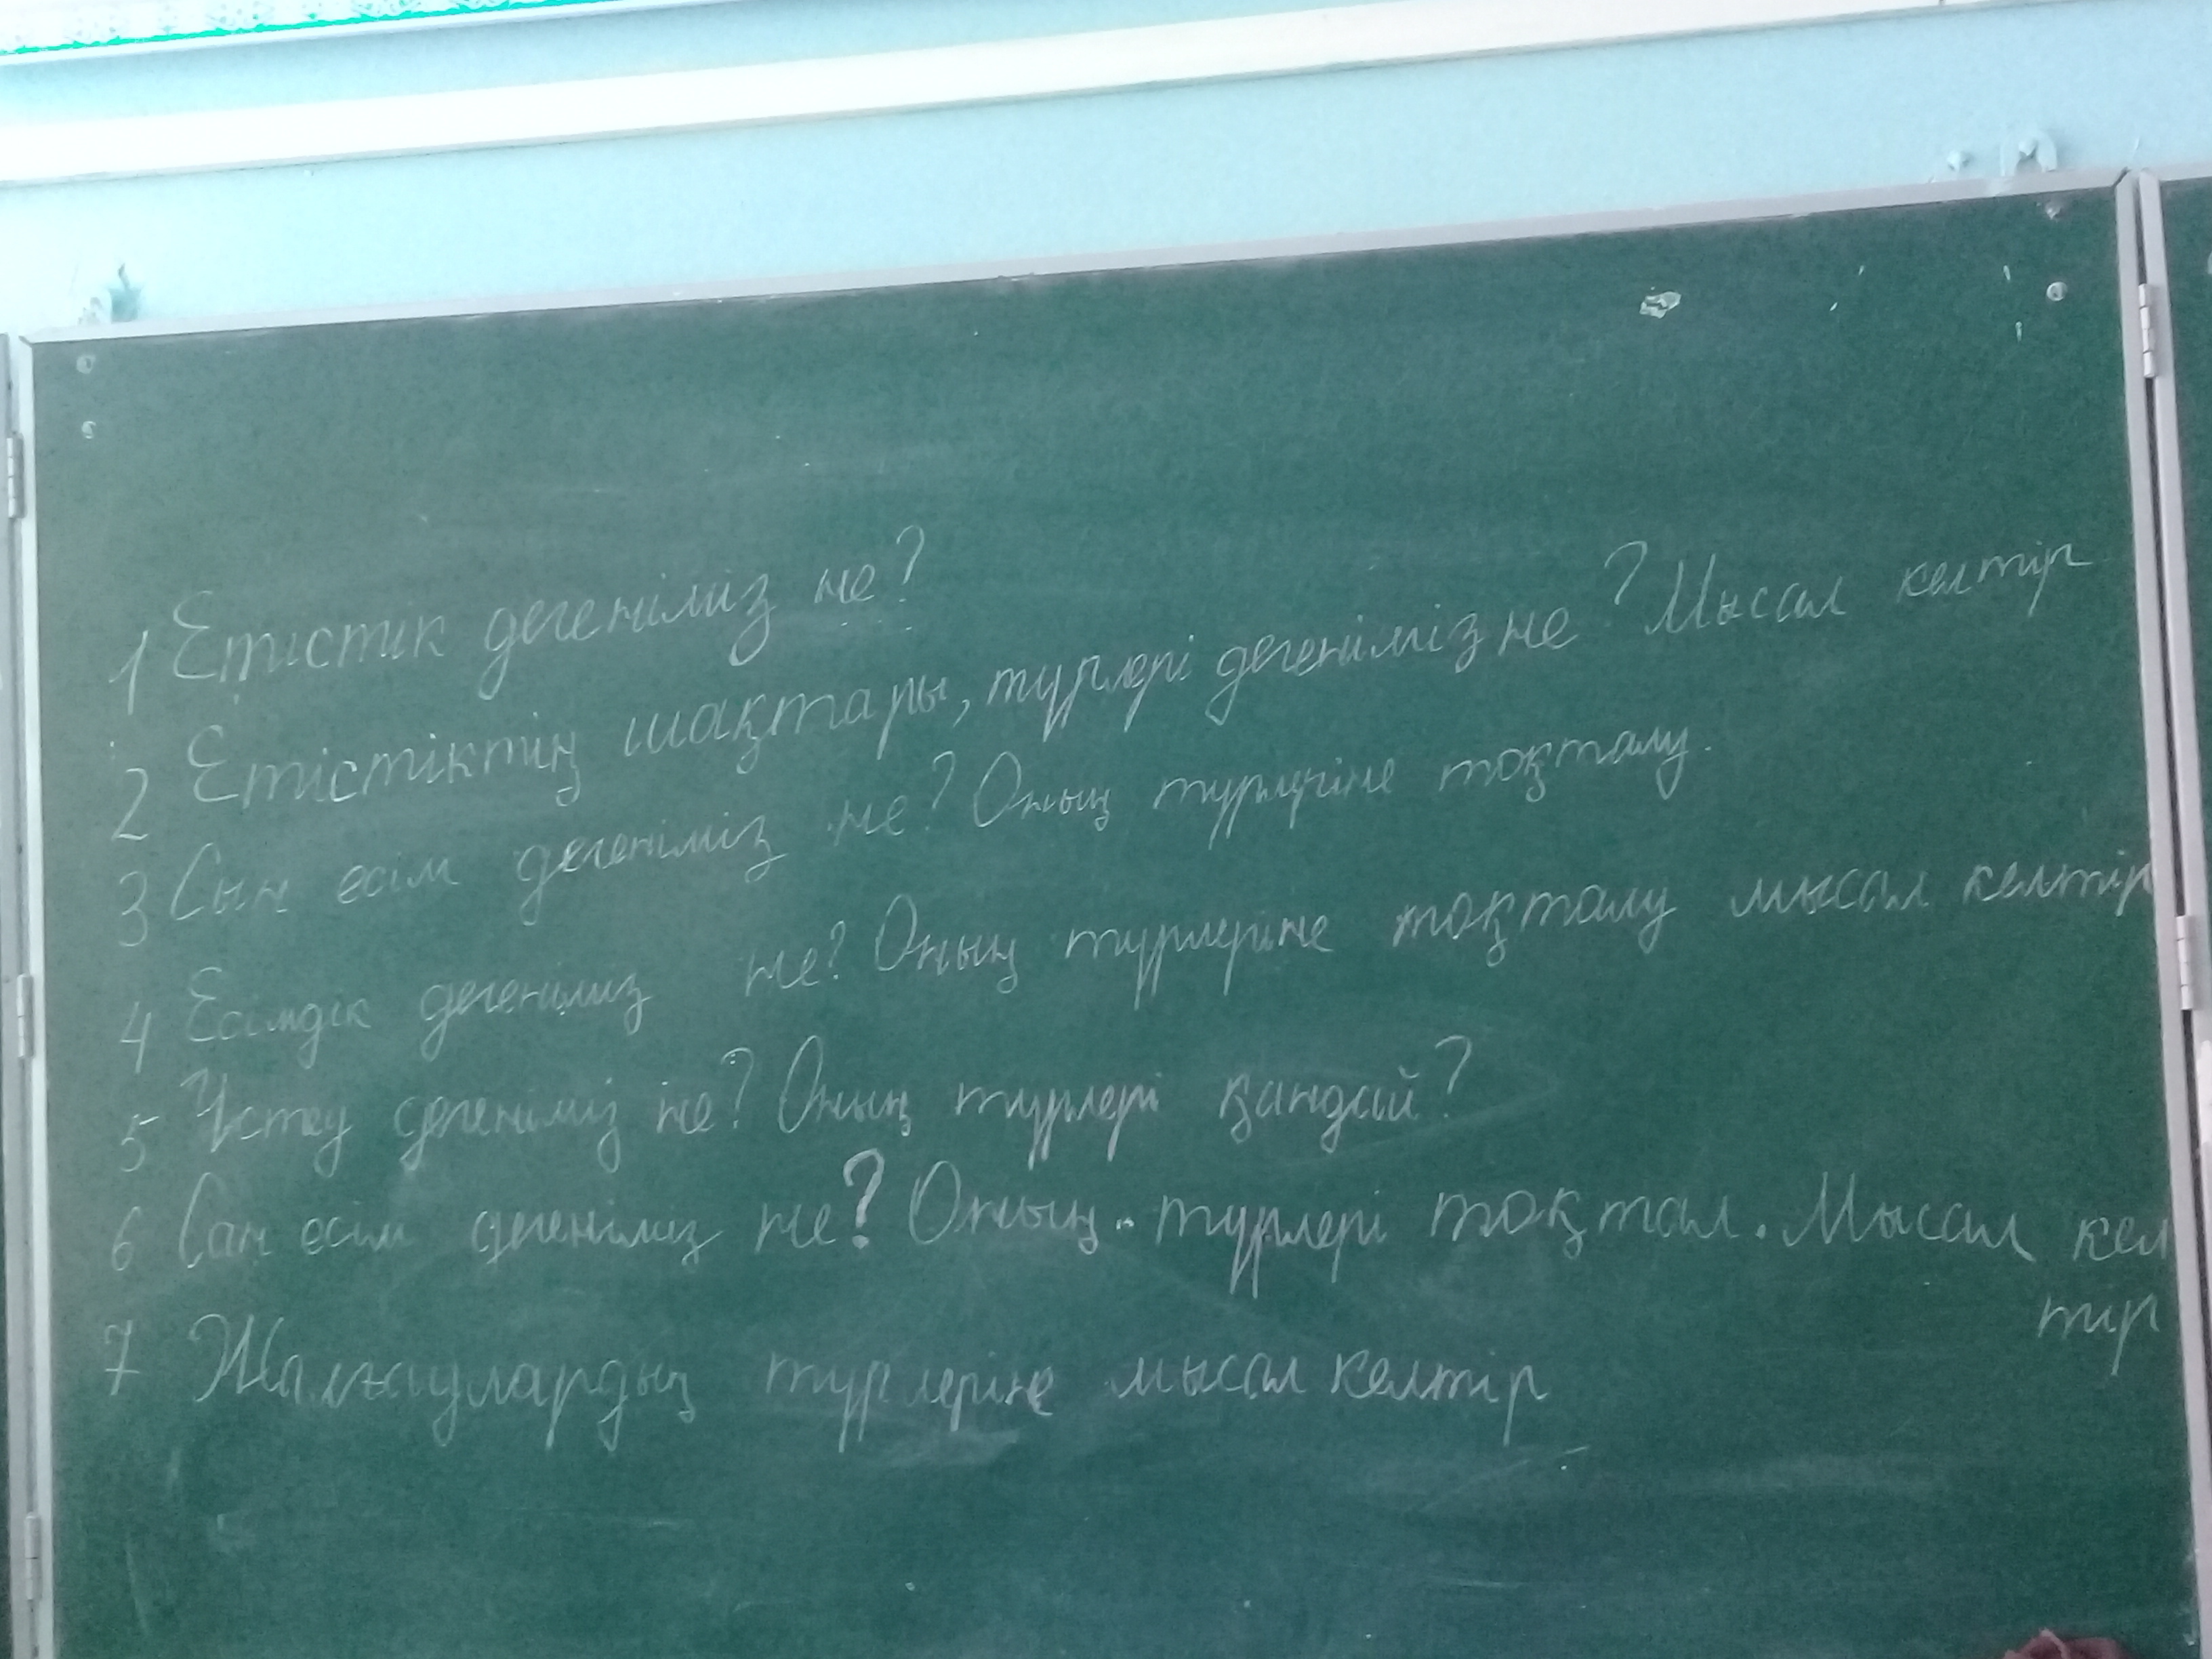 1 Етістік дегеніміз не?
2 Етістіктің шақтары, түрлері дегеніміз не? Мысал келтір
3 Сын есім дегеніміз не? Оның түрлеріне тоқталу.
4 Есімдік дегеніміз не? Оның түрлеріне тоқталу мысал келтір
5 Үстеу дегеніміз не? Оның түрлері қандай?
6 Сан есім дегеніміз не? Оның түрлері тоқтал. Мысал кел
тір
7 Жалғаулардың түрлеріне мысал келтір